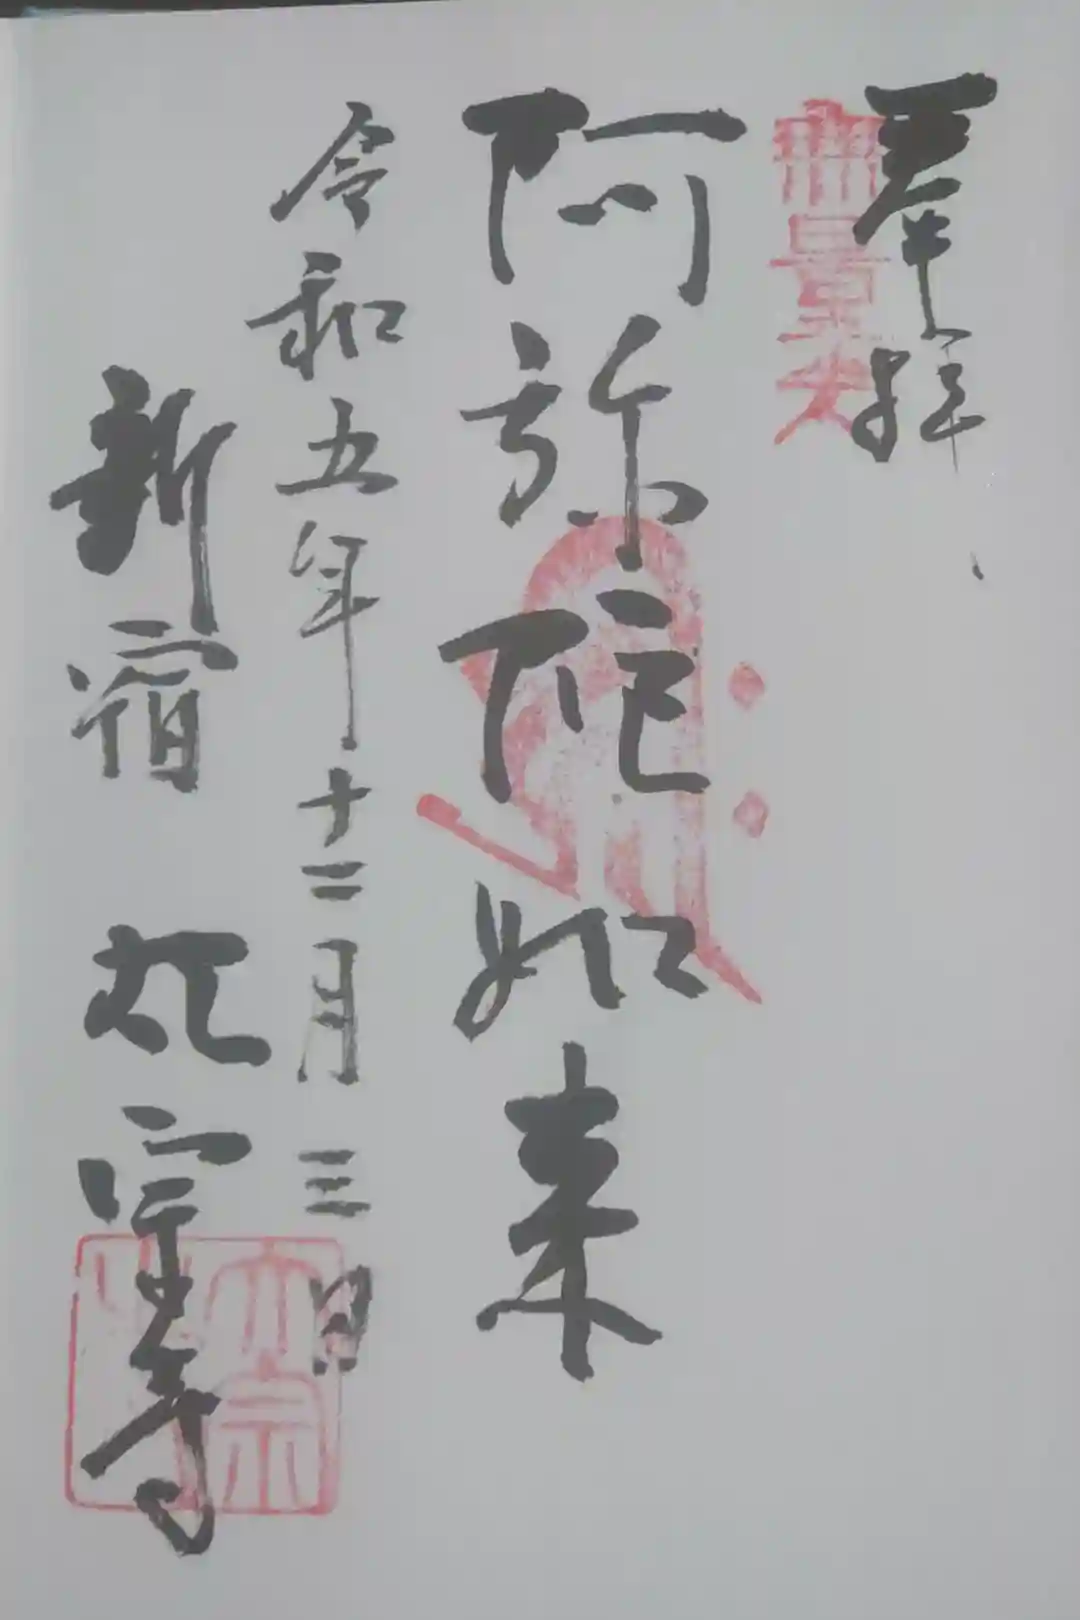 奉拝
無量光
阿弥陀如来
令和五年十二月三日
新宿 太宗寺